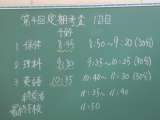 第4回定期考査 1日目
予鈴
1 保体 8:45 8:50~9:20 (30分)
2 理科 9:30 9:35~10:25
3 英語 10:35 10:40~11:30
終学活 11:35~11:40
最終下校 11:50